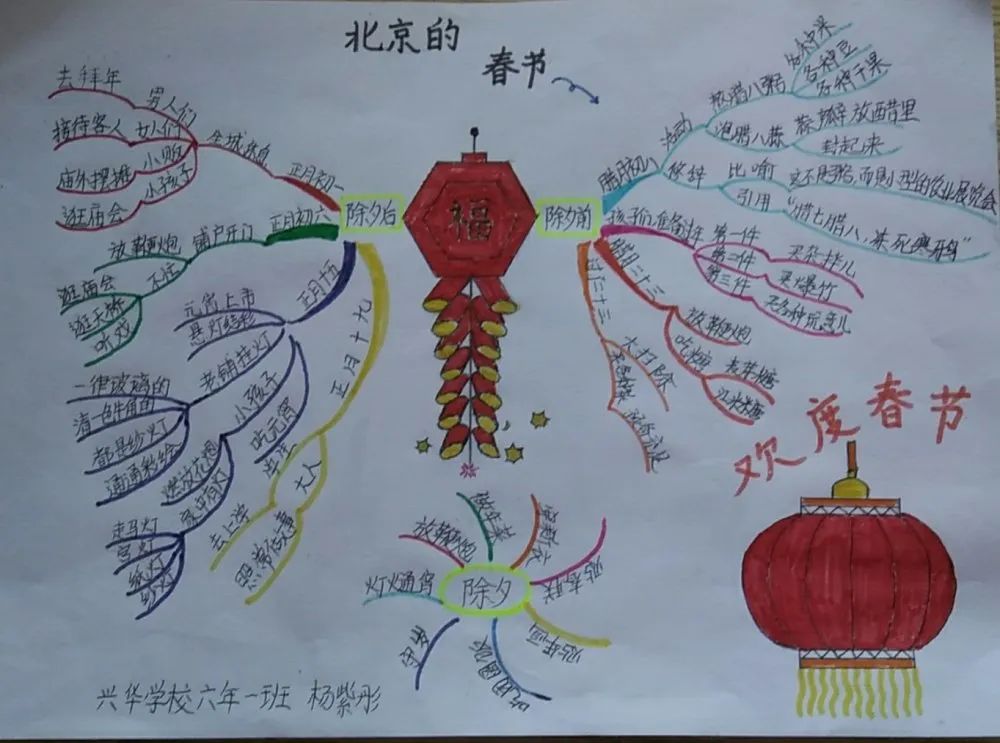 北京的
春节
福
除夕后
正月初一
全城休息
男人们
去拜年
女人们
接待客人
小贩
庙外摆摊
小孩子
逛庙会
正月初六
铺户开门
放鞭炮
不忙
逛庙会
逛天桥
听戏
正月十五
元宵上市
悬灯结彩
老铺挂灯
一律玻璃的
清一色牛角的
都是纱灯
通通彩绘
小孩子
燃放花炮
家中有灯
走马灯
宫灯
纸灯
纱灯
吃元宵
正月十九
学生
去上学
大人
照常做事
除夕前
腊月初八
活动
熬腊八粥
各种米
各种豆
各种干果
泡腊八蒜
蒜瓣 放醋里
封起来
修辞
比喻
引用
"腊七腊八,冻死寒鸦"
孩子们准备过年
第一件
买杂拌儿
第二件
买爆竹
第三件
买各种玩意儿
腊月二十三
放鞭炮
吃糖
麦芽糖
江米糖
过二十三
大扫除
除夕
做年菜
穿新衣
贴春联
贴年画
吃团圆饭
守岁
灯火通宵
放鞭炮
欢度春节
兴华学校六年一班 杨紫彤